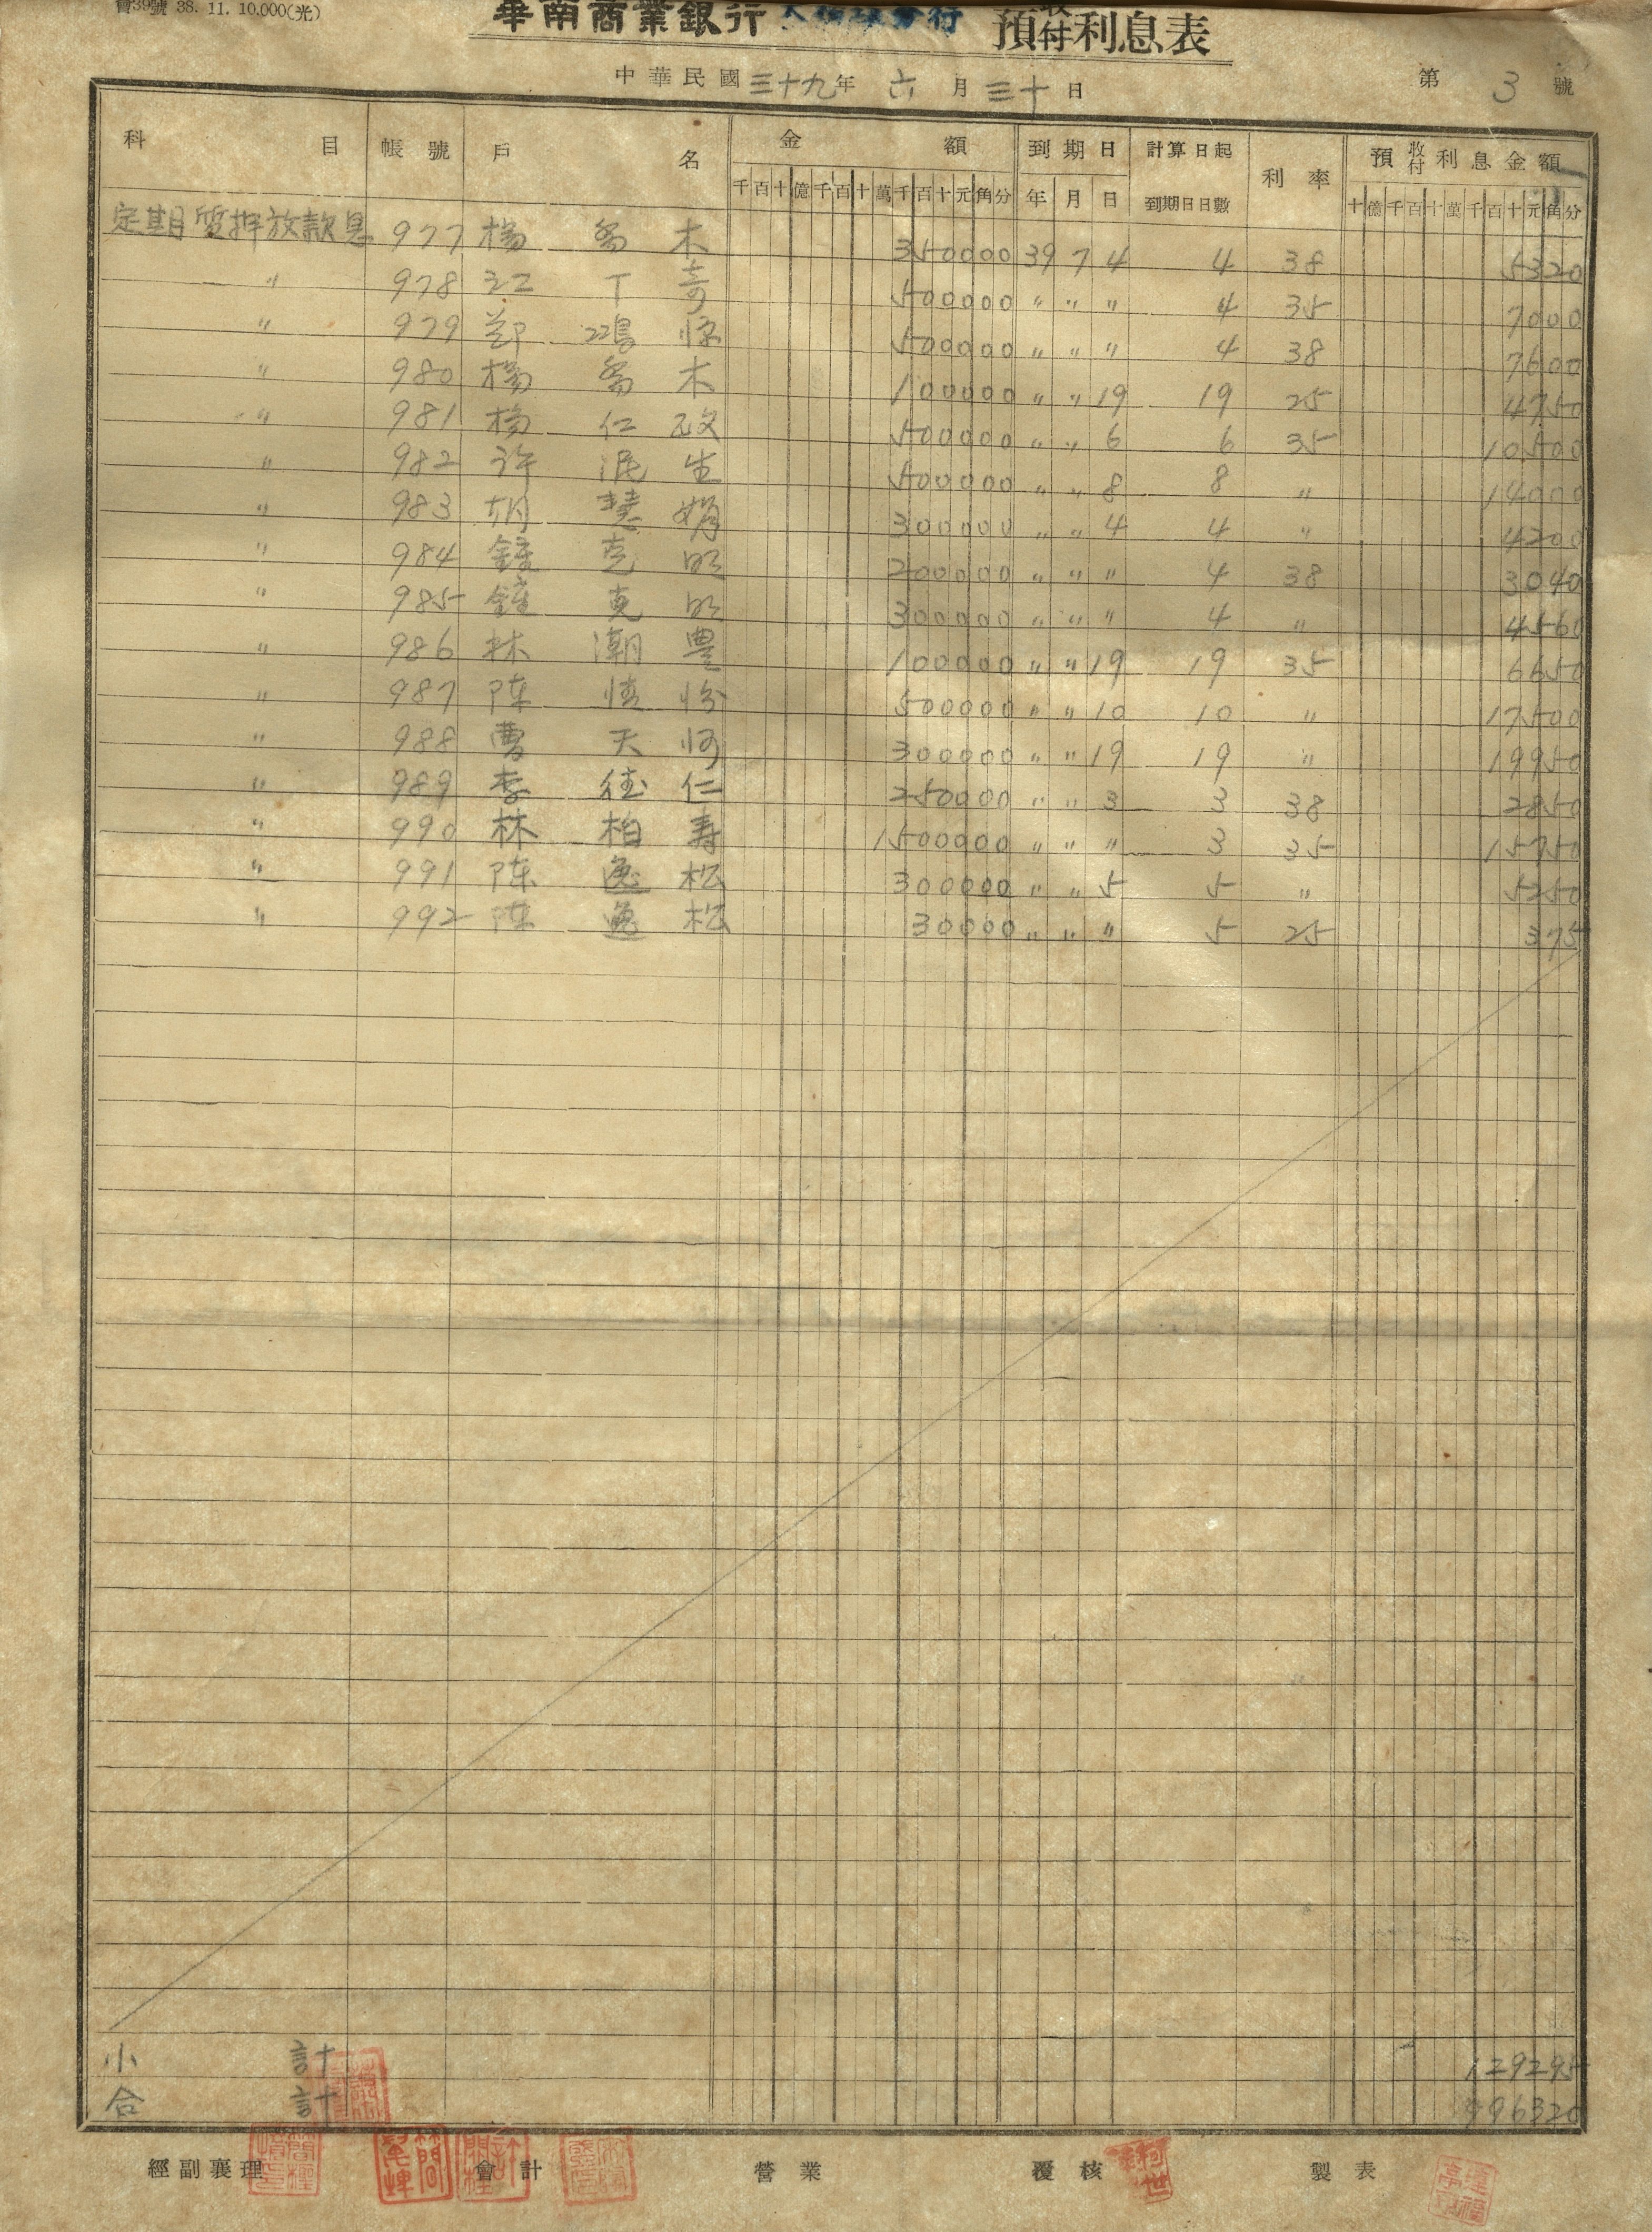 會39號 38. 11. 10.000(光)
華南商業銀行 大稻埕分行 預收付利息表
中華民國三十九年 六月三十日 第3號
科目 帳號 戶名 金額 到期日 計算日起到期日日數 利率 預收付利息金額
千百十億千百十萬千百十元角分 年月日 十億千百十萬千百十元角分
定期質押放款息 977 楊喬木 350000 39 7 4 4 38 5320
〃 978 江丁奇 500000 〃 〃 〃 4 35 7000
〃 979 鄭鴻 500000 〃 〃 〃 4 38 7600
〃 980 楊喬木 100000 〃 〃 19 19 25 4750
〃 981 楊仁政 500000 〃 〃 6 6 35 10500
〃 982 許混生 500000 〃 〃 8 8 〃 14000
〃 983 胡慧娟 300000 〃 〃 4 4 〃 4200
〃 984 鐘克明 200000 〃 〃 〃 4 38 3040
〃 985 鐘克明 300000 〃 〃 〃 4 〃 4560
〃 986 林潮豊 100000 〃 〃 19 19 35 6650
〃 987 陳 500000 〃 〃 10 10 〃 17500
〃 988 曹天 300000 〃 〃 19 19 〃 19950
〃 989 李德仁 250000 〃 〃 3 3 38 2850
〃 990 林柏壽 1500000 〃 〃 〃 3 35 15750
〃 991 陳逸松 300000 〃 〃 5 5 〃 5250
〃 992 陳逸松 30000 〃 〃 〃 5 25 375
小計 129295
合計 996320
經副襄理 會計 營業 覆核 製表